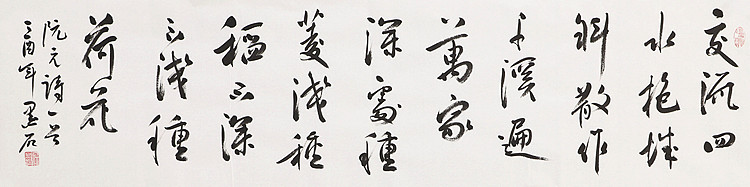 交流四
水抱城
斜散作
千溪遍
萬家
深處種
菱淺種
稻不深
不淺種
荷花
阮元詩一首
丁酉年